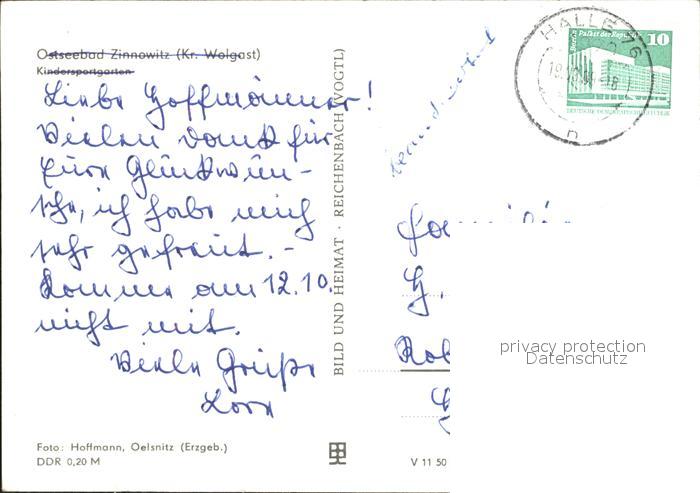 Ostseebad Zinnowitz (Kr. Wolgast)
Kindersportgarten
Liebe Hoffmänner!
Vielen Dank für
Eure Glückwün-
sche, ich habe mich
sehr gefreut. -
Komme am 12.10.
nicht mit.
Viele Grüße
Foto: Hoffmann, Oelsnitz (Erzgeb.)
DDR 0,20 M
BILD UND HEIMAT · REICHENBACH (VOGTL)
V 11 50
HALLE 76
Berlin, Palast der Republik
10
DEUTSCHE DEMOKRATISCHE REPUBLIK
n
privacy protection
Datenschutz